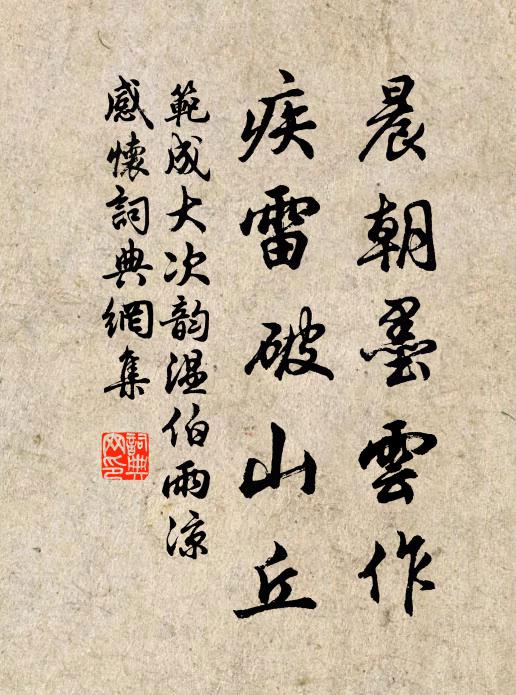 晨朝墨雲作
疾雷破山丘
範成大次韵溫伯雨涼
感懷詞典網集
詞典
网印